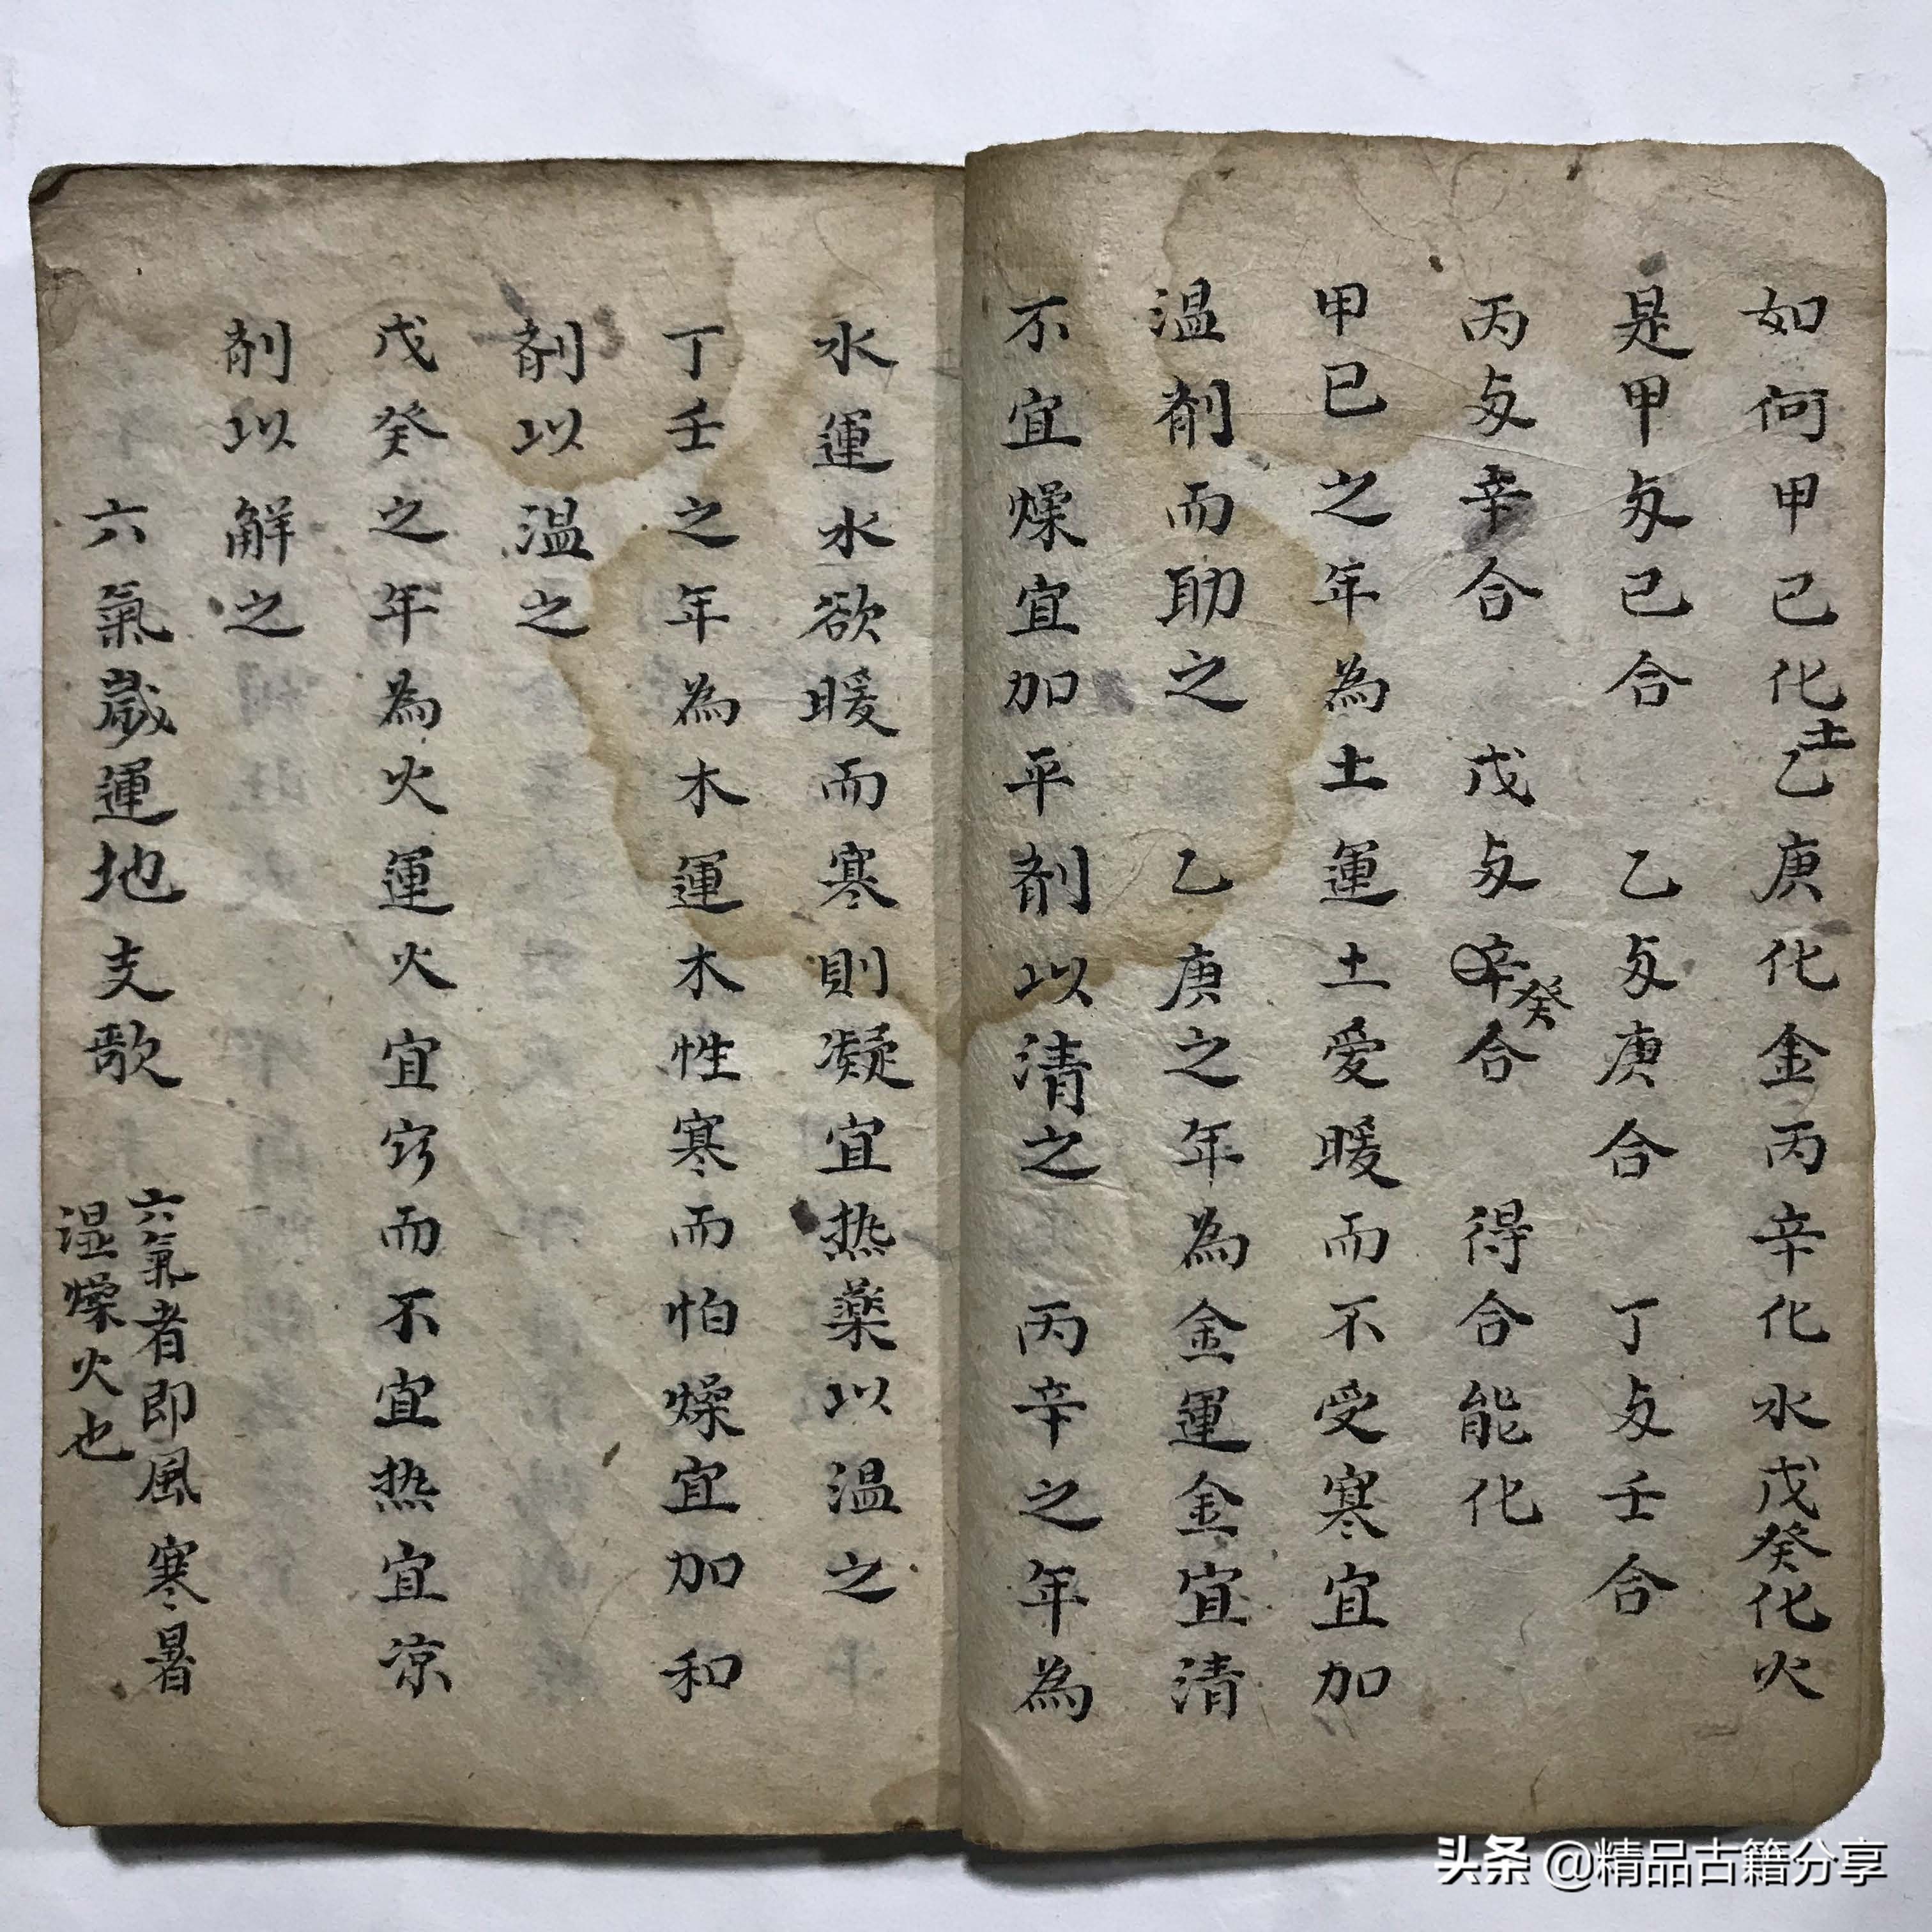 如何甲已化土乙庚化金丙辛化水戊癸化火
是甲与已合　乙与庚合　丁与壬合
丙与辛合　戊与辛癸合　得合能化
甲已之年為土運土爱暖而不受寒宜加
温剤而助之　乙庚之年為金運金宜清
不宜燥宜加平剤以清之　丙辛之年為
水運水欲暖而寒則凝宜热薬以温之
丁壬之年為木運木性寒而怕燥宜加和
剤以温之
戊癸之年為火運火宜窍而不宜热宜凉
剤以解之
六氣歲運地支歌
六氣者即風寒暑
湿燥火也
头条 @精品古籍分享